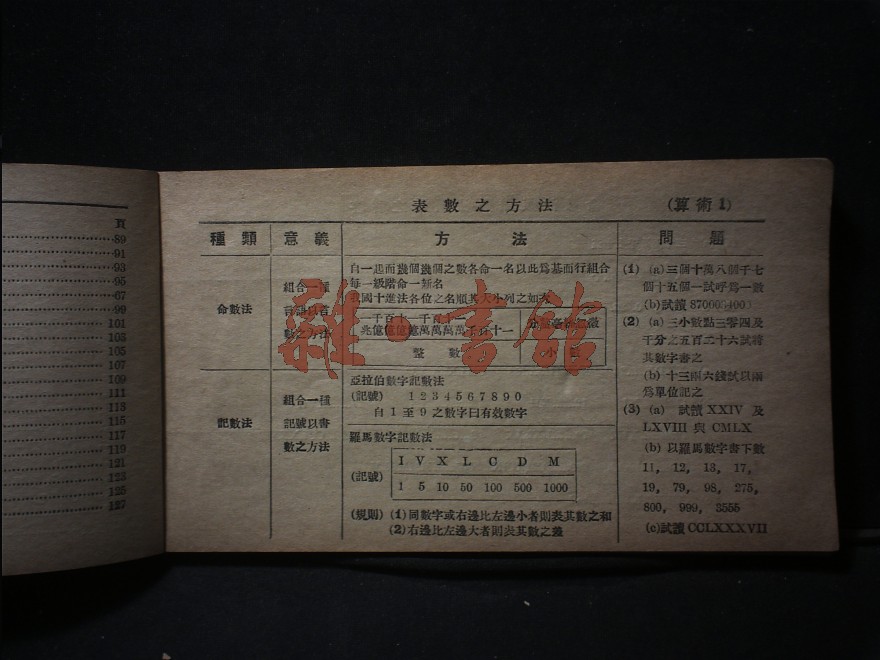 頁
89
91
93
95
67
99
101
103
105
107
109
111
113
115
117
119
121
123
125
127
表數之方法
(算術1)
種類 意義 方法 問題
命數法
組合一種
言語以言
數之方法
自一起而幾個幾個之數各命一名以此爲基而行組合
每一級階命一新名
我國十進法各位之名順其大小列之如次
千百十 千百十
兆億億億億萬萬萬萬千百十一
分厘毫絲忽微
整數
小數
記數法
組合一種
記號以書
數之方法
亞拉伯數字記數法
(記號) 1 2 3 4 5 6 7 8 9 0
自1至9之數字曰有效數字
羅馬數字記數法
(記號)
I V X L C D M
1 5 10 50 100 500 1000
(規則) (1)同數字或右邊比左邊小者則表其數之和
(2)右邊比左邊大者則表其數之差
(1) (a)三個十萬八個千七
個十五個一試呼爲一數
(b)試讀870005400)
(2) (a)三小數點三零四及
千分之五百二十六試將
其數字書之
(b)十三兩六錢試以兩
爲單位記之
(3) (a) 試讀XXIV及
LXVIII與CMLX
(b)以羅馬數字書下數
11, 12, 13, 17,
19, 79, 98, 275,
800, 999, 3555
(c)試讀CCLXXXVII
雜·書館